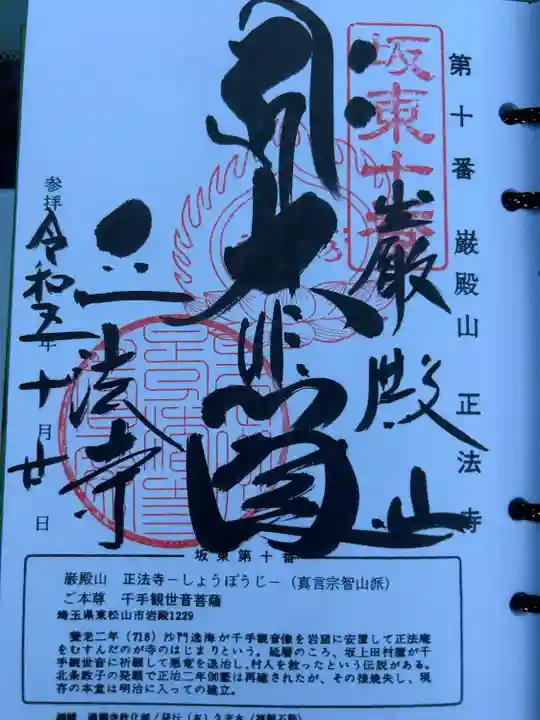 第十番 巌殿山 正法寺
坂東十番
巌殿山
大悲閣
正法寺
参拝 令和五年十月廿日
坂東第十番
巌殿山 正法寺－しょうぼうじ－（真言宗智山派）
ご本尊 千手観世音菩薩
埼玉県東松山市岩殿1229
養老二年（718）沙門逸海が千手観音像を岩窟に安置して正法庵
をむすんだのが寺のはじまりという。延暦のころ、坂上田村麿が千
手観世音に祈願して悪竜を退治し、村人を救ったという伝説がある。
北条政子の発願で正治二年伽藍は再建されたが、その後焼失し、現
存の本堂は明治に入っての建立。